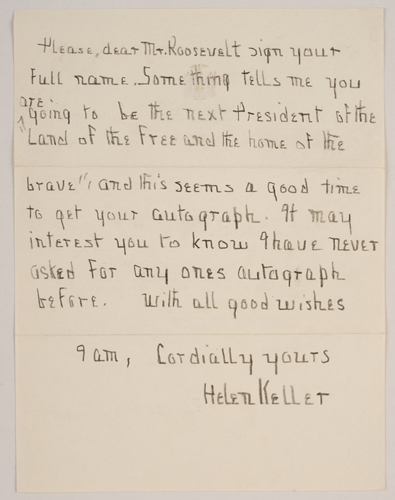 Please, dear Mr. Roosevelt sign your
full name. Something tells me you
are
going to be the next President of the
"Land of the Free and the home of the
brave", and this seems a good time
to get your autograph. It may
interest you to know I have never
asked for any ones autograph
before. With all good wishes
I am, Cordially yours
Helen Keller